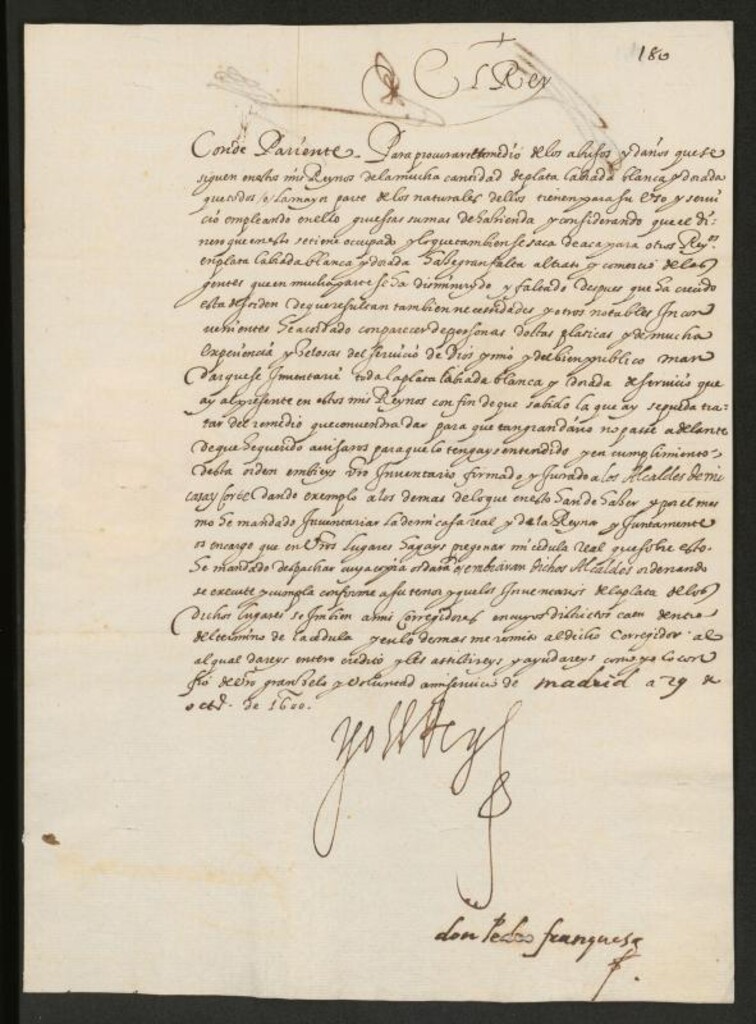 180
El Rey
Conde Pariente. Para procurar remedio de los abusos y daños que se
siguen en estos mis Reynos de la mucha cantidad de plata labrada blanca y dorada
que todos o la mayor parte de los naturales dellos tienen para su uso y servi
cio empleando en ello gruessas sumas de hazienda y considerando que el di
nero que en esto se tiene ocupado y lo que tambien se saca de aca para otros Reynos
en plata labrada blanca y dorada haze gran falta al trato y comercio de las
gentes que en mucha parte se ha disminuydo y faltado despues que ha crecido
esta desorden de que resultan tambien necessidades y otros notables Incon
venientes he acordado con parecer de personas doctas platicas y de mucha
experiencia y zelosas del servicio de Dios y mio y del bien publico man
dar que se Inventarie toda la plata labrada blanca y dorada de servicio que
ay al presente en estos mis Reynos con fin de que sabido la que ay se pueda tra
tar del remedio que convendra dar para que tan gran daño no passe adelante
de que he querido avisaros para que lo tengays entendido y en cumplimiento
desta orden embieys vro Inventario firmado y Jurado a los Alcaldes de mi
casa y corte dando exemplo a los demas de lo que en esto han de haber y por el mes
mo he mandado Inventariar la de mi casa real y de la Reyna y Juntamente
os encargo que en vros lugares hagays pregonar mi cedula real que sobre esto
he mandado despachar cuya copia os embiaran dichos Alcaldes ordenando
se execute y cumpla conforme a su tenor y que los Inventarios de la plata de los
dichos lugares se Imbien a mis Corregidores en cuyos districtos caen dentro
del termino de la cedula y en lo demas me remito al dicho Corregidor al
al qual dareys entero credito y les assistireys y ayudareys como yo lo con
fio de vro gran zelo y voluntad a mi servicio de Madrid a 29 de
octe. de 1600.
yo el Rey
don Pedro franquesa